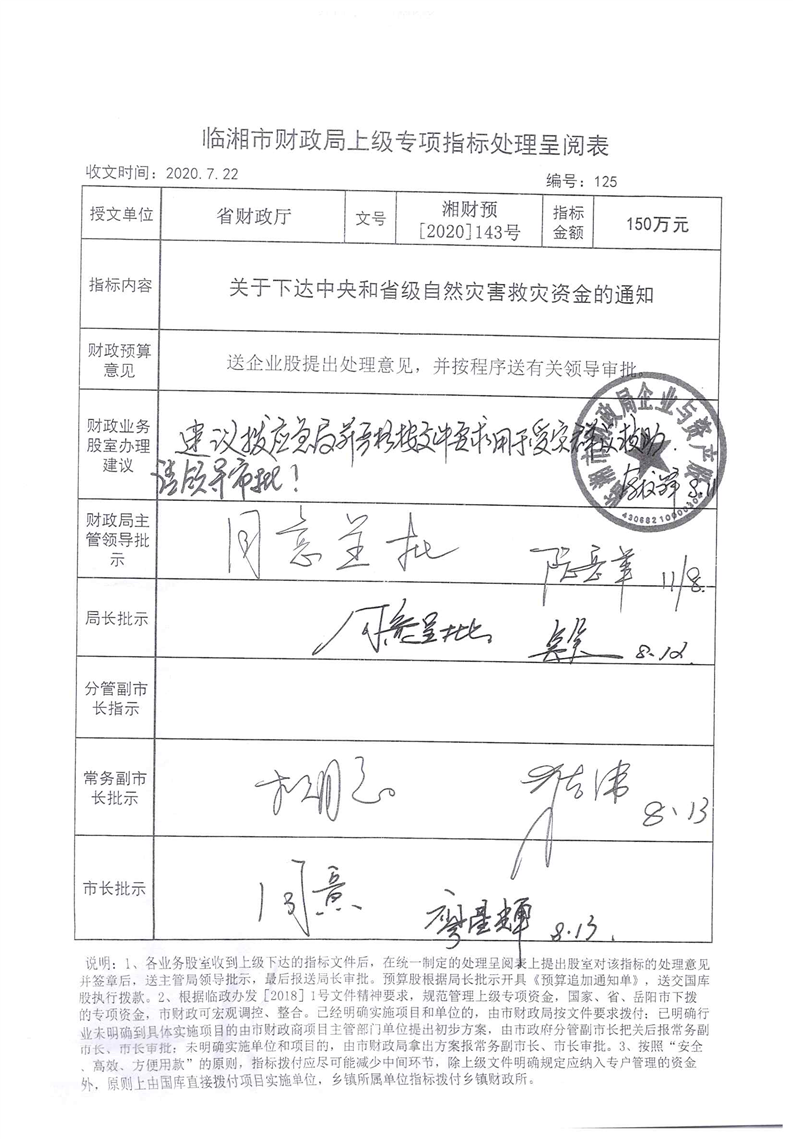 临湘市财政局上级专项指标处理呈阅表
收文时间：2020.7.22
编号：125
授文单位
省财政厅
文号
湘财预
[2020]143号
指标
金额
150万元
指标内容
关于下达中央和省级自然灾害救灾资金的通知
财政预算
意见
送企业股提出处理意见，并按程序送有关领导审批。
财政业务
股室办理
建议
建议拨应急局并严格按文件要求用于受灾群众救助.
请领导审批！
8.11
临湘市财政局企业与资产股
财政局主
管领导批
示
同意呈批
11/8.
局长批示
呈批
8.12
分管副市
长指示
常务副市
长批示
8.13
市长批示
同意
廖星辉
8.13.
说明：1、各业务股室收到上级下达的指标文件后，在统一制定的处理呈阅表上提出股室对该指标的处理意见
并签章后，送主管局领导批示，最后报送局长审批。预算股根据局长批示开具《预算追加通知单》，送交国库
股执行拨款。2、根据临政办发［2018］1号文件精神要求，规范管理上级专项资金，国家、省、岳阳市下拨
的专项资金，市财政可宏观调控、整合。已经明确实施项目和单位的，由市财政局按文件要求拨付；已明确行
业未明确到具体实施项目的由市财政商项目主管部门单位提出初步方案，由市政府分管副市长把关后报常务副
市长、市长审批；未明确实施单位和项目的，由市财政局拿出方案报常务副市长、市长审批。3、按照“安全
、高效、方便用款”的原则，指标拨付应尽可能减少中间环节，除上级文件明确规定应纳入专户管理的资金
外，原则上由国库直接拨付项目实施单位，乡镇所属单位指标拨付乡镇财政所。